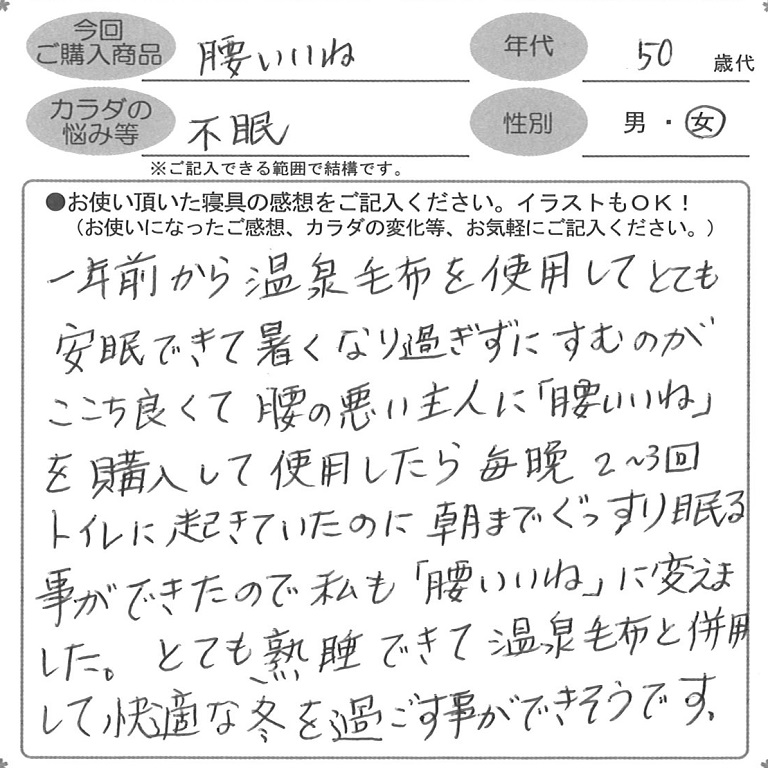 今回
ご購入商品
腰いいね
年代
50
歳代
カラダの
悩み等
不眠
性別
男・女
※ご記入できる範囲で結構です。
●お使い頂いた寝具の感想をご記入ください。イラストもOK！
（お使いになったご感想、カラダの変化等、お気軽にご記入ください。）
一年前から温泉毛布を使用してとても
安眠できて暑くなり過ぎずにすむのが
ここち良くて腰の悪い主人に「腰いいね」
を購入して使用したら毎晩2~3回
トイレに起きていたのに朝までぐっすり眠る
事ができたので私も「腰いいね」に変えま
した。とても熟睡できて温泉毛布と併用
して快適な冬を過ごす事ができそうです。